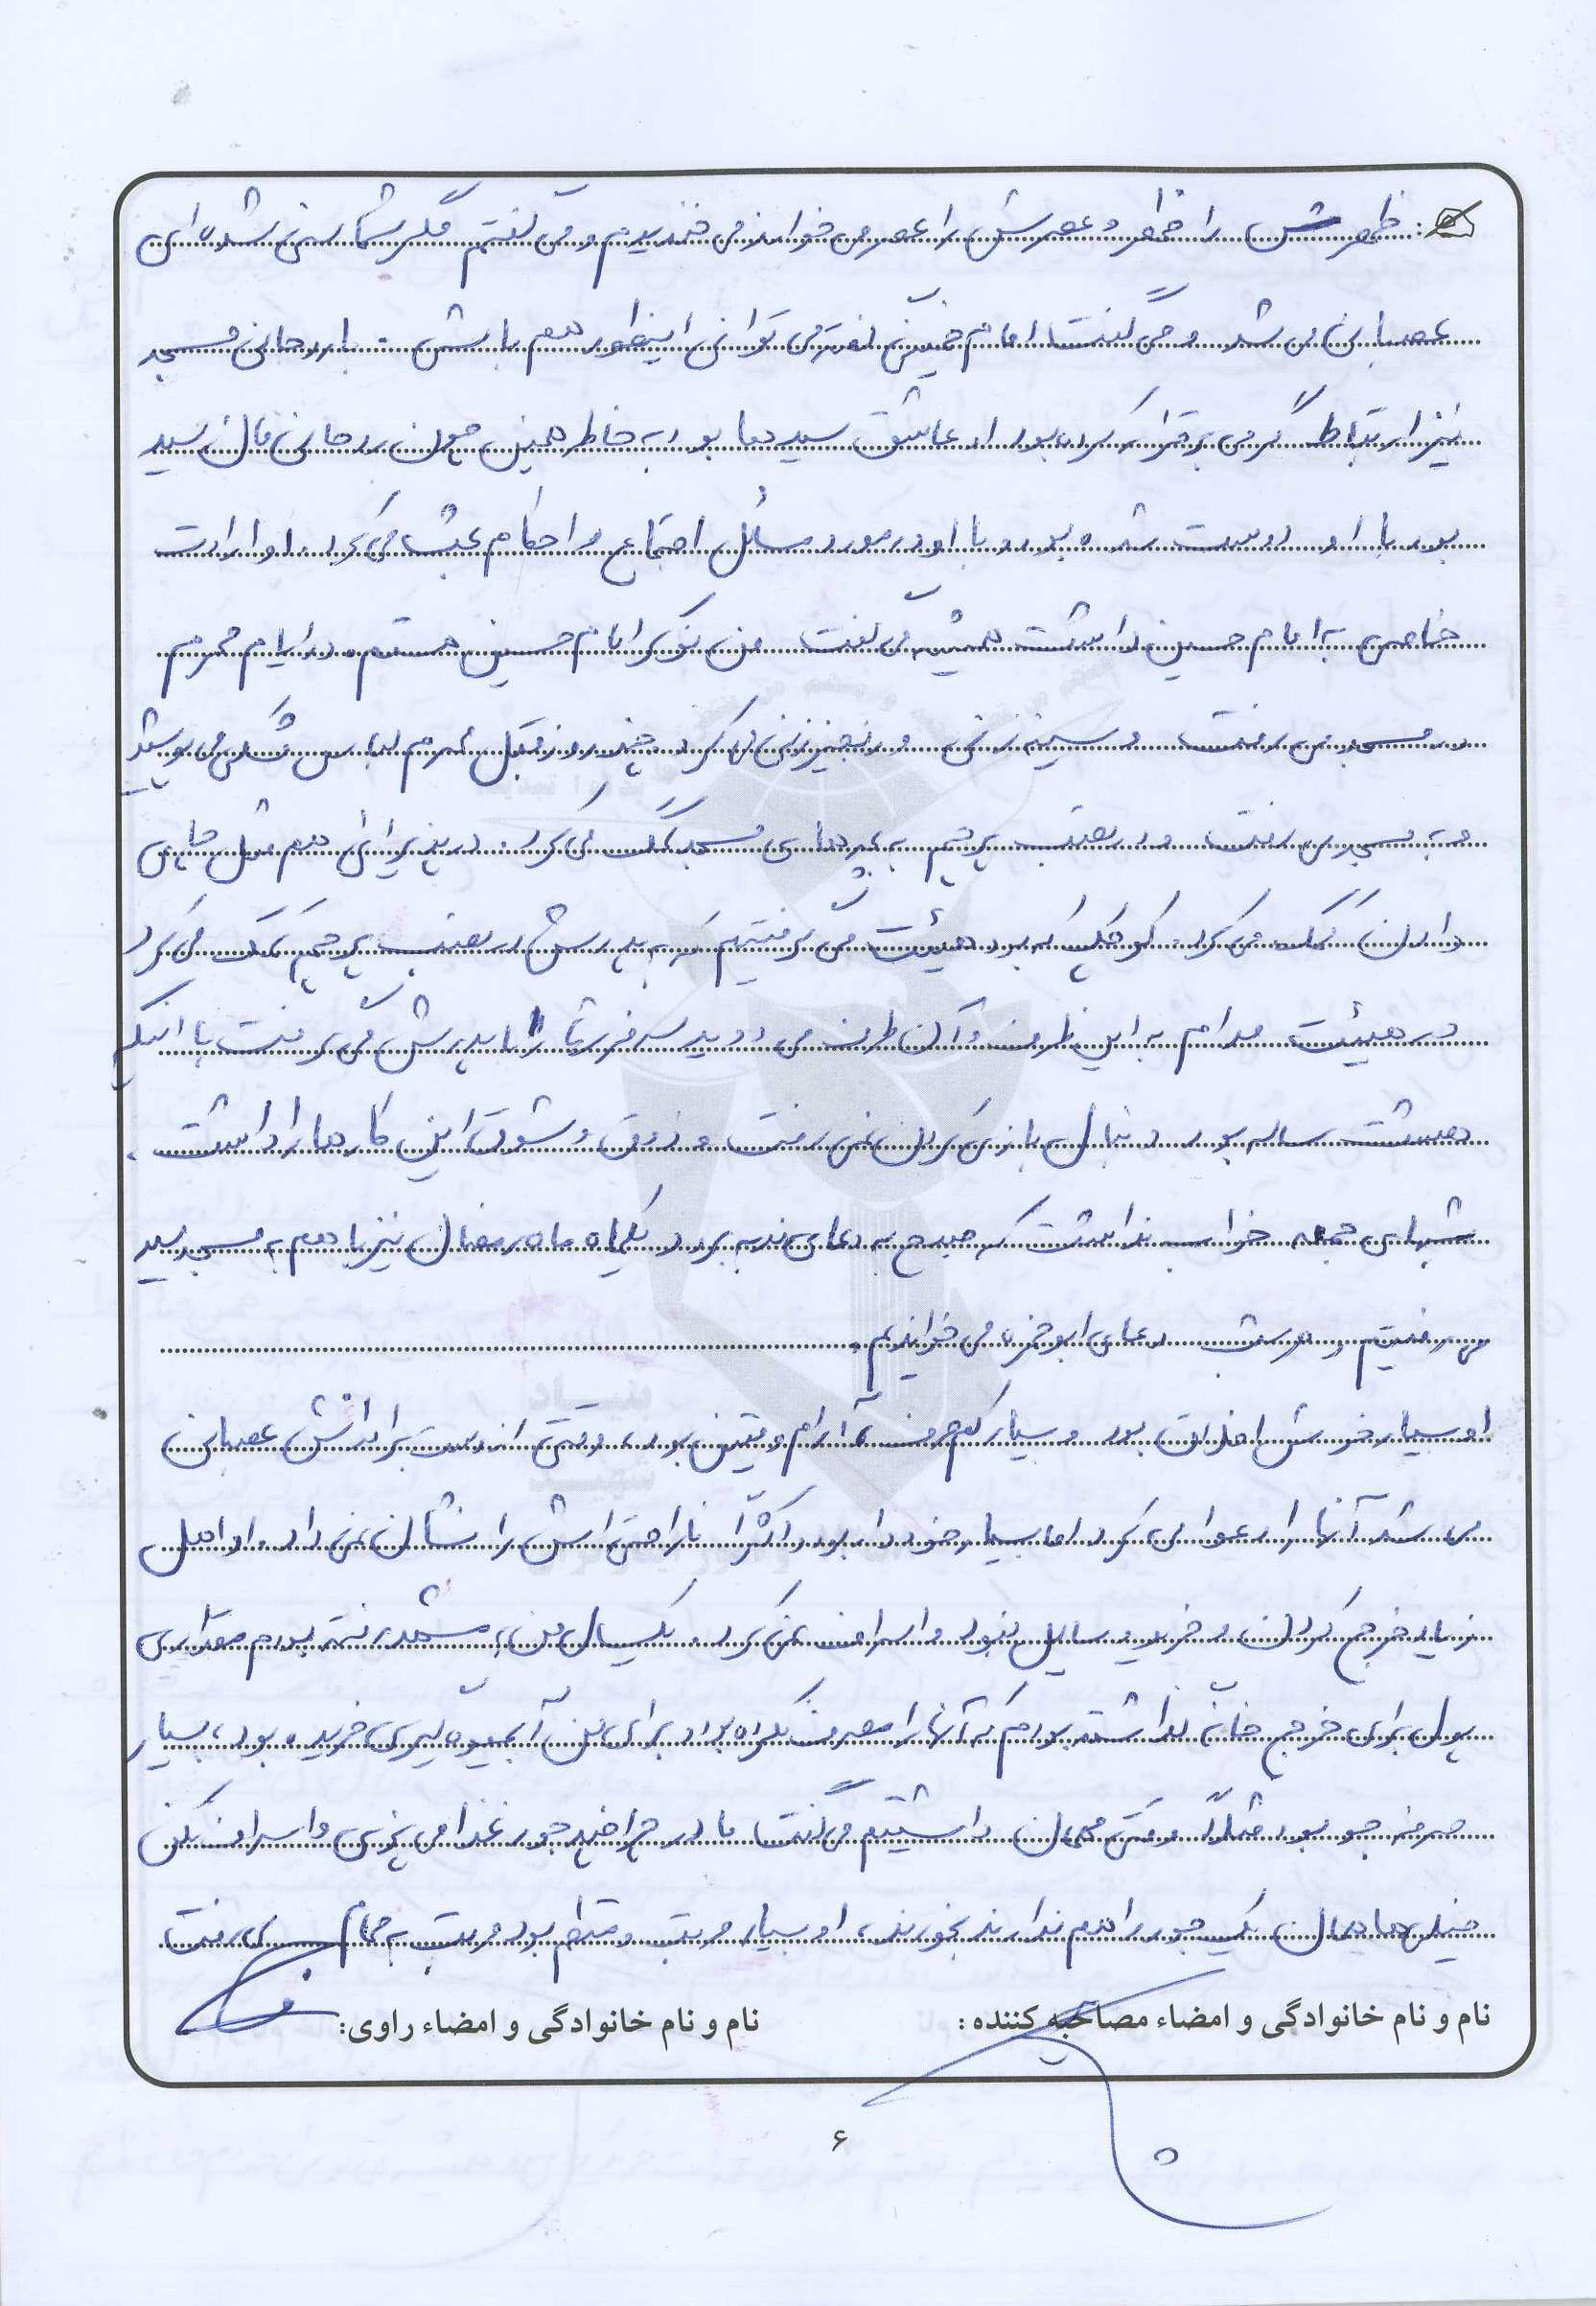 ظهرش را ظهر و عصرش را عصر می خواند می خندیدم و می گفتم مگر شما سنی شده ای
عصبانی می شد و می گفت امام خمینی گفته می توانی اینطور هم باشی . با روحانی مسجد
نیز ارتباط گرمی برقرار کرده بود او عاشق سیدها بود به خاطر همین چون روحانی مان سید
بود با او دوست شده بود و با او در مورد مسائل اجتماع و احکام بحث می کرد . او ارادت
خاصی به امام حسین داشت همیشه می گفت من نوکر امام حسین هستم . در ایام محرم
در مسجد می رفت و سینه زنی و زنجیرزنی می کرد . چند روز قبل محرم لباس مشکی می پوشید
و به مسجد می رفت و در نصب پرچم به بچه های مسجد کمک می کرد . در پذیرایی هم مثل چایی
دادن کمک می کرد . کوچک که بود هیئت می گرفتیم که به پدرش در نصب پرچم کمک می کرد
در هیئت مدام به این طرف و آن طرف می دوید سفارشات را با پدرش می گرفت با اینکه
هشت ساله بود دنبال بازی کردن نمی رفت و ذوق و شوق این کارها را داشت .
شبهای جمعه خواب نداشت که صبح به دعای ندبه برود یکماه ماه رمضان نیز با هم به مسجد سید
می رفتیم و هر شب دعای ابوحمزه می خواندیم .
او بسیار خوش اخلاق بود و بسیار کم حرف ، آرام و متین بود ، وقتی از دست برادرانش عصبانی
می شد آنها را دعوا می کرد اما بسیار خوددار بود و اکثراً ناراحتی اش را نشان نمی داد . او اهل
زیاد خرج کردن و خرید وسایل نبود و اسراف نمی کرد . یکسال من به مشهد رفته بودم مقداری
پول برای خرج خانه گذاشته بودم که آنها را مصرف نکرده بود و برای من آبمیوه گیری خریده بود ، بسیار
صرفه جو بود مثلاً وقتی مهمان داشتیم می گفت مادر چرا چند جور غذا می پزی و اسراف نکن
خیلی ها همان یک جور را هم ندارند بخورند ، او بسیار مرتب و منظم بود مرتب به حمام می رفت
نام و نام خانوادگی و امضاء مصاحبه کننده : نام و نام خانوادگی و امضاء راوی:
۶